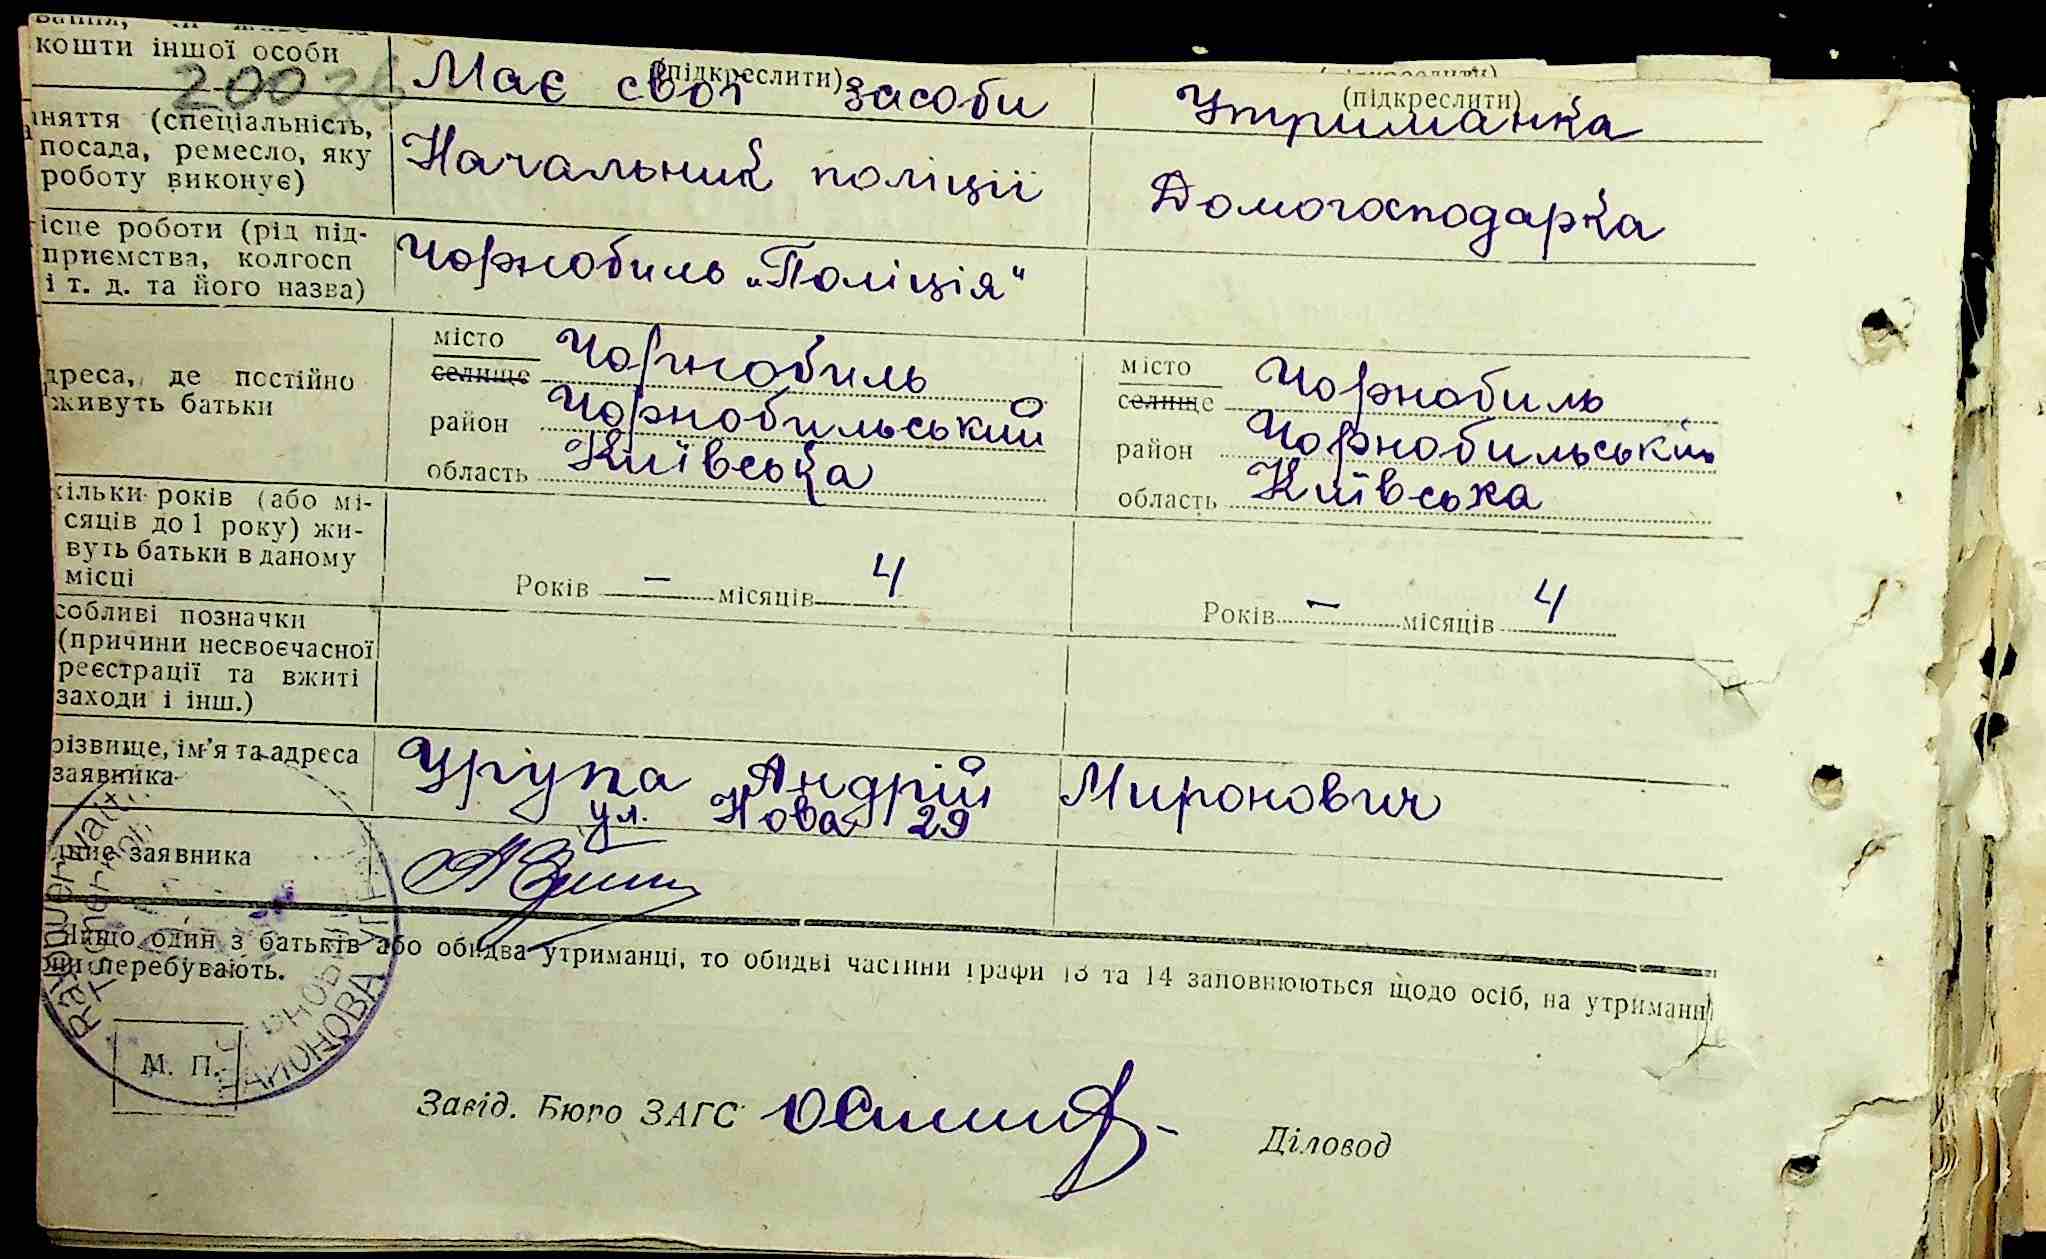 кошти іншої особи
(підкреслити)
(підкреслити)
200
Має свої засоби
Утриманка
няття (спеціальність,
посада, ремесло, яку
роботу виконує)
Начальник поліції
Домогосподарка
ісце роботи (рід під-
приємства, колгосп
і т. д. та його назва)
Чорнобиль „Поліція"
дреса, де постійно
живуть батьки
місто
селище
Чорнобиль
район Чорнобильський
область Київська
місто
селище
Чорнобиль
район Чорнобильський
область Київська
кільки років (або мі-
сяців до 1 року) жи-
вуть батьки в даному
місці
Років — місяців 4
Років — місяців 4
собливі позначки
(причини несвоєчасної
реєстрації та вжиті
заходи і інш.)
різвище, ім'я та адреса
заявника
Урупа Андрій Миронович
ул. Нова 29
заявника
Якщо один з батьків або обидва утриманці, то обидві частини графи 13 та 14 заповнюються щодо осіб, на утриманні
перебувають.
М. П.
Завід. Бюро ЗАГС
Діловод